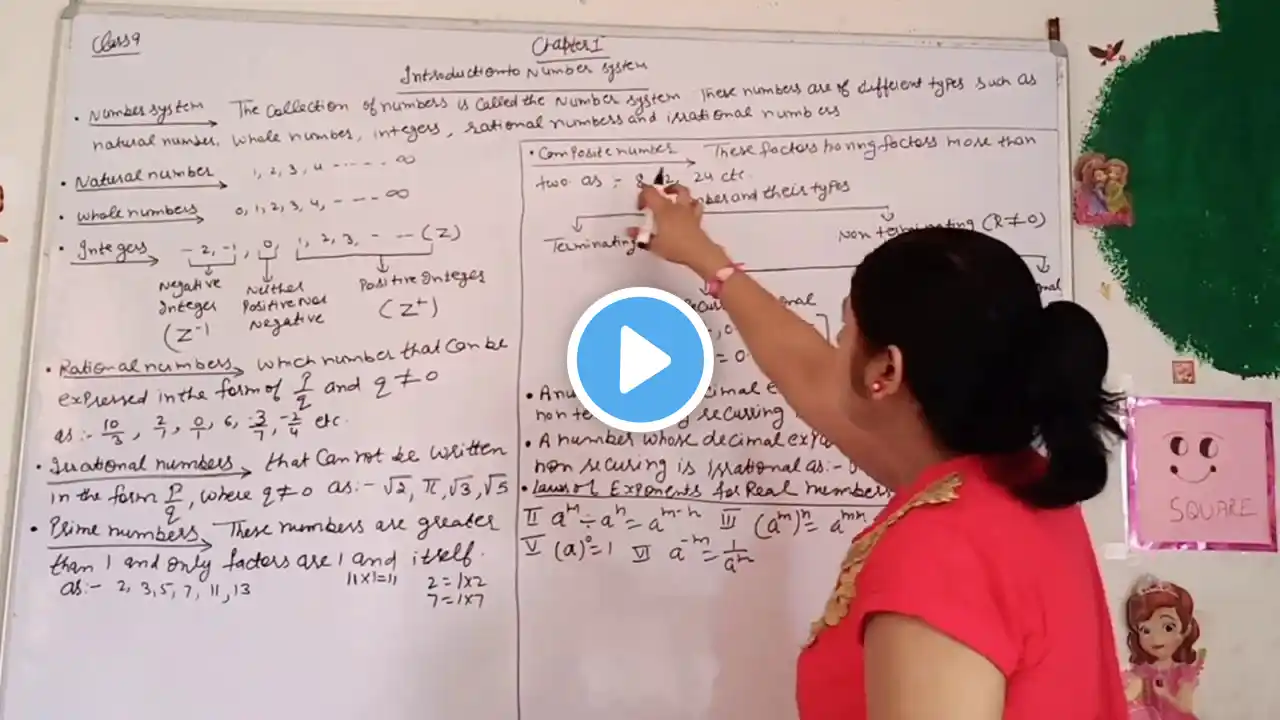 Class 9
Chapter 1
Introduction to Number System
• Number System The collection of numbers is called the Number System These numbers are of different types such as
natural number, whole number, integers, rational numbers and irrational numbers
• Natural number 1, 2, 3, 4 ------ ∞
• Whole numbers 0, 1, 2, 3, 4, ------ ∞
• Integers - 2, -1, 0, 1, 2, 3, ----- (Z)
Negative Integer (Z⁻¹
Neither Positive Nor Negative
Positive Integers (Z⁺)
• Rational numbers which number that can be
expressed in the form of p/q and q ≠ 0
as :- 10/3, 2/7, 0/1, 6, -3/7, -2/4 etc.
• Irrational numbers that can not be written
in the form p/q, where q ≠ 0 as:- √2, π, √3, √5
• Prime numbers These numbers are greater
than 1 and only factors are 1 and itself.
as:- 2, 3, 5, 7, 11, 13
11×1=11
2 = 1×2
7 = 1×7
• Composite number These factors having factors more than
two as :- 8, 24 etc.
and their types
Terminating
Non terminating (R ≠ 0)
• A number whose decimal
non recuring is irrational as:-
• Laws of Exponents for Real numbers
II aᵐ ÷ aⁿ = aᵐ⁻ⁿ III (aᵐ)ⁿ = aᵐⁿ
V (a)⁰ = 1 VI a⁻ᵐ = 1/aᵐ
SQUARE